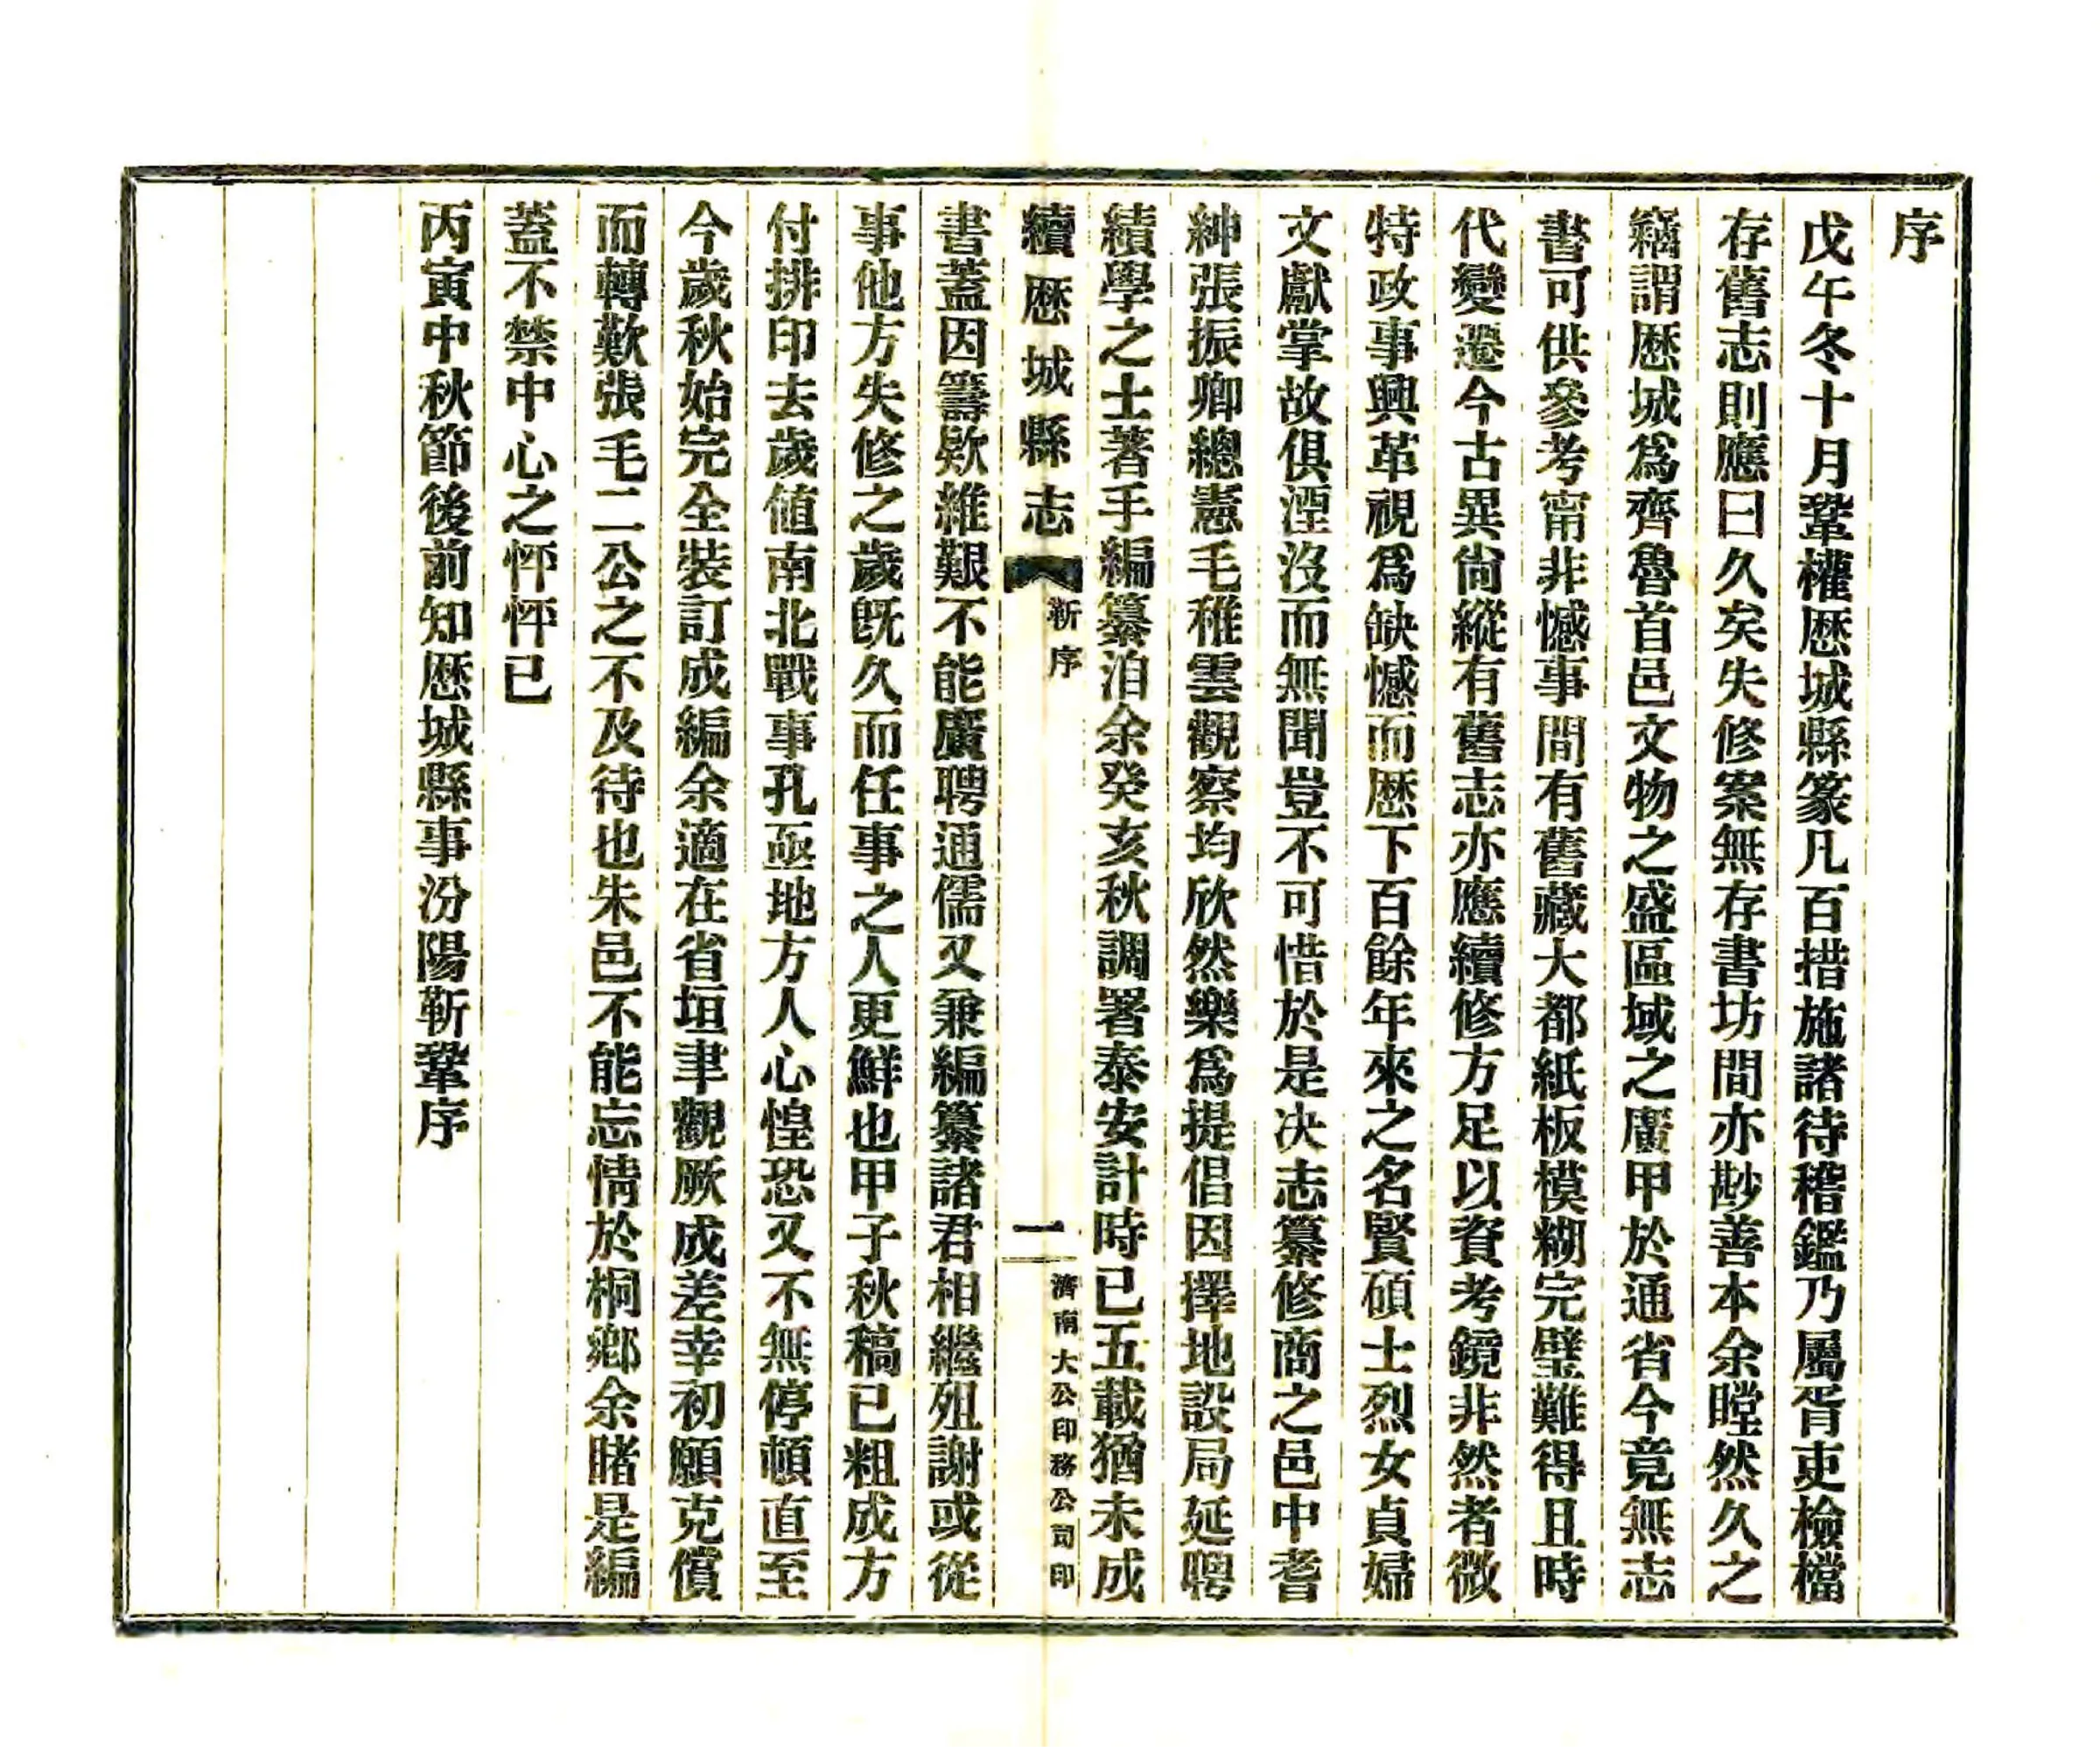 序
戊午冬十月鞏權歷城縣篆凡百措施諸待稽鑑乃屬胥吏檢檔
存舊志則應曰久矣失修案無存書坊間亦尠善本余瞠然久之
竊謂歷城爲齊魯首邑文物之盛區域之廣甲於通省今竟無志
書可供參考甯非憾事間有舊藏大都紙板模糊完璧難得且時
代變遷今古異尙縱有舊志亦應續修方足以資考鏡非然者微
特政事興革視爲缺憾而歷下百餘年來之名賢碩士烈女貞婦
文獻掌故俱湮沒而無聞豈不可惜於是决志纂修商之邑中耆
紳張振卿總憲毛稚雲觀察均欣然樂爲提倡因擇地設局延聘
績學之士著手編纂洎余癸亥秋調署泰安計時已五載猶未成
續歷城縣志 靳序 一 濟南大公印務公司印
書蓋因籌欵維艱不能廣聘通儒又兼編纂諸君相繼殂謝或從
事他方失修之歲旣久而任事之人更鮮也甲子秋稿已粗成方
付排印去歲値南北戰事孔亟地方人心惶恐又不無停頓直至
今歲秋始完全裝訂成編余適在省垣聿觀厥成差幸初願克償
而轉歎張毛二公之不及待也朱邑不能忘情於桐鄉余睹是編
蓋不禁中心之怦怦已
丙寅中秋節後前知歷城縣事汾陽靳鞏序